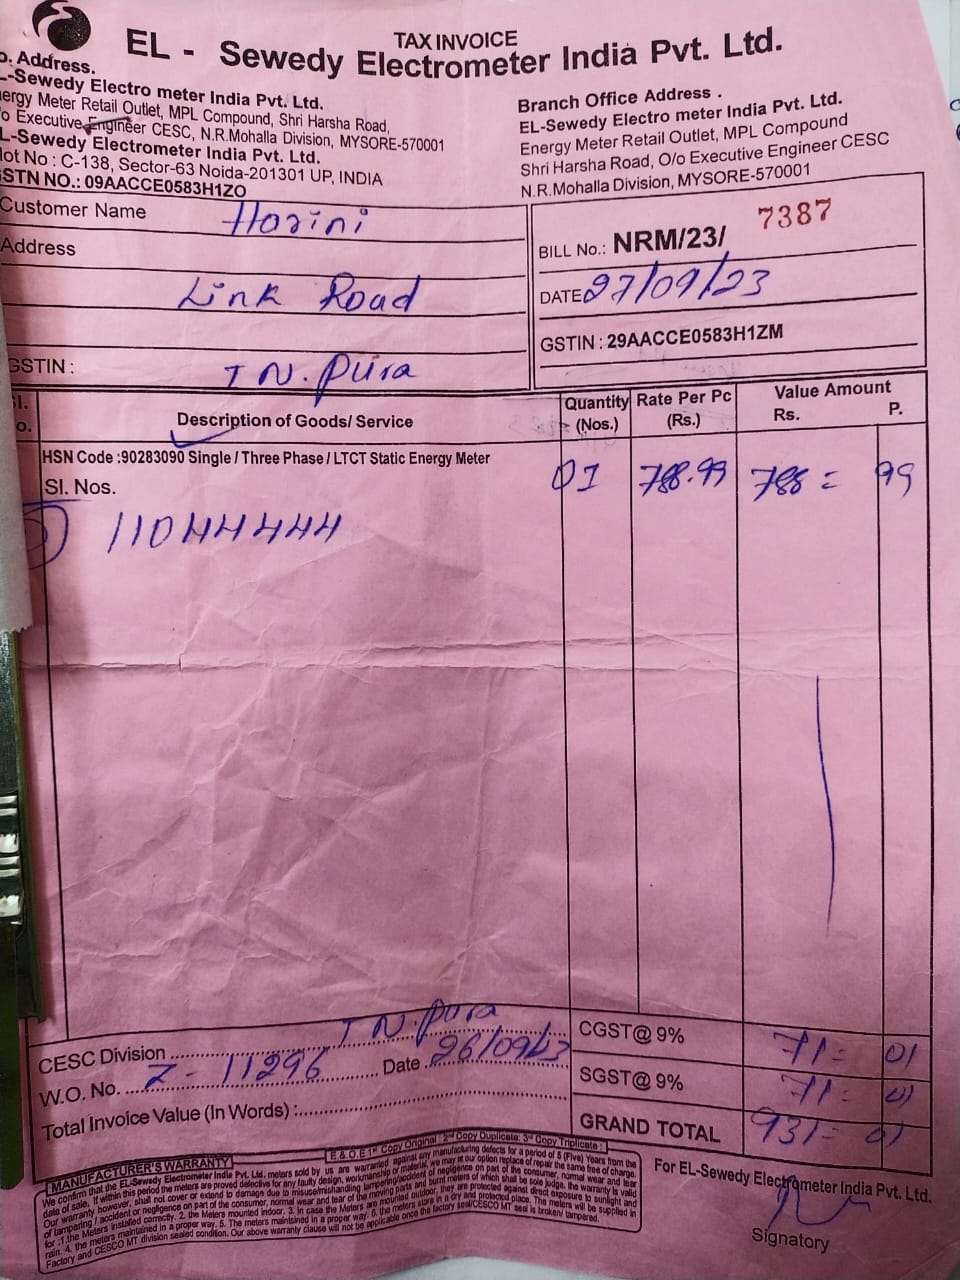 TAX INVOICE
EL - Sewedy Electrometer India Pvt. Ltd.
Address.
-Sewedy Electro meter India Pvt. Ltd.
ergy Meter Retail Outlet, MPL Compound, Shri Harsha Road,
/o Executive Engineer CESC, N.R.Mohalla Division, MYSORE-570001
L-Sewedy Electrometer India Pvt. Ltd.
lot No : C-138, Sector-63 Noida-201301 UP, INDIA
GSTN NO.: 09AACCE0583H1ZO
Branch Office Address .
EL-Sewedy Electro meter India Pvt. Ltd.
Energy Meter Retail Outlet, MPL Compound
Shri Harsha Road, O/o Executive Engineer CESC
N.R.Mohalla Division, MYSORE-570001
Customer Name Harini
Address
Link Road
GSTIN : T N. Pura
BILL No.: NRM/23/ 7387
DATE 27/09/23
GSTIN : 29AACCE0583H1ZM
Sl. No. Description of Goods/ Service Quantity (Nos.) Rate Per Pc (Rs.) Value Amount Rs. P.
HSN Code :90283090 Single / Three Phase / LTCT Static Energy Meter 01 788.99 788 = 99
Sl. Nos.
11044444
CESC Division T N. Pura
W.O. No. Z - 11296 Date 26/09/23
Total Invoice Value (In Words) :
CGST@ 9% 71 = 01
SGST@ 9% 71 = 01
GRAND TOTAL 931 = 01
E & O.E 1st Copy Original : 2nd Copy Duplicate: 3rd Copy Triplicate :
MANUFACTURER'S WARRANTY
We confirm that the EL-Sewedy Electrometer India Pvt. Ltd. meters sold by us are warranted against any manufacturing defects for a period of 5 (Five) Years from the
date of sale. If within this period the meters are proved defective for any faulty design, workmanship or material, we may at our option replace of repair the same free of charge.
Our warranty however, shall not cover or extend to damage due to misuse/mishandling tampering/accident of negligence on part of the consumer, normal wear and tear
of tampering / accident or negligence on part of the consumer, normal wear and tear of the moving parts and burnt meters of which shall be sole judge. The warranty is valid
for :1.the Meters installed correctly. 2. the Meters mounted indoor. 3. In case the Meters are mounted outdoor, they are protected against direct exposure to sunlight and
rain. 4. the meters maintained in a proper way. 5. The meters maintained in a proper way. 6. the meters stored in a dry and protected place. The meters will be supplied in
Factory and CESCO MT division sealed condition. Our above warranty clause will not be applicable once the factory seal/CESCO MT seal is broken/ tampered.
For EL-Sewedy Electrometer India Pvt. Ltd.
Signatory